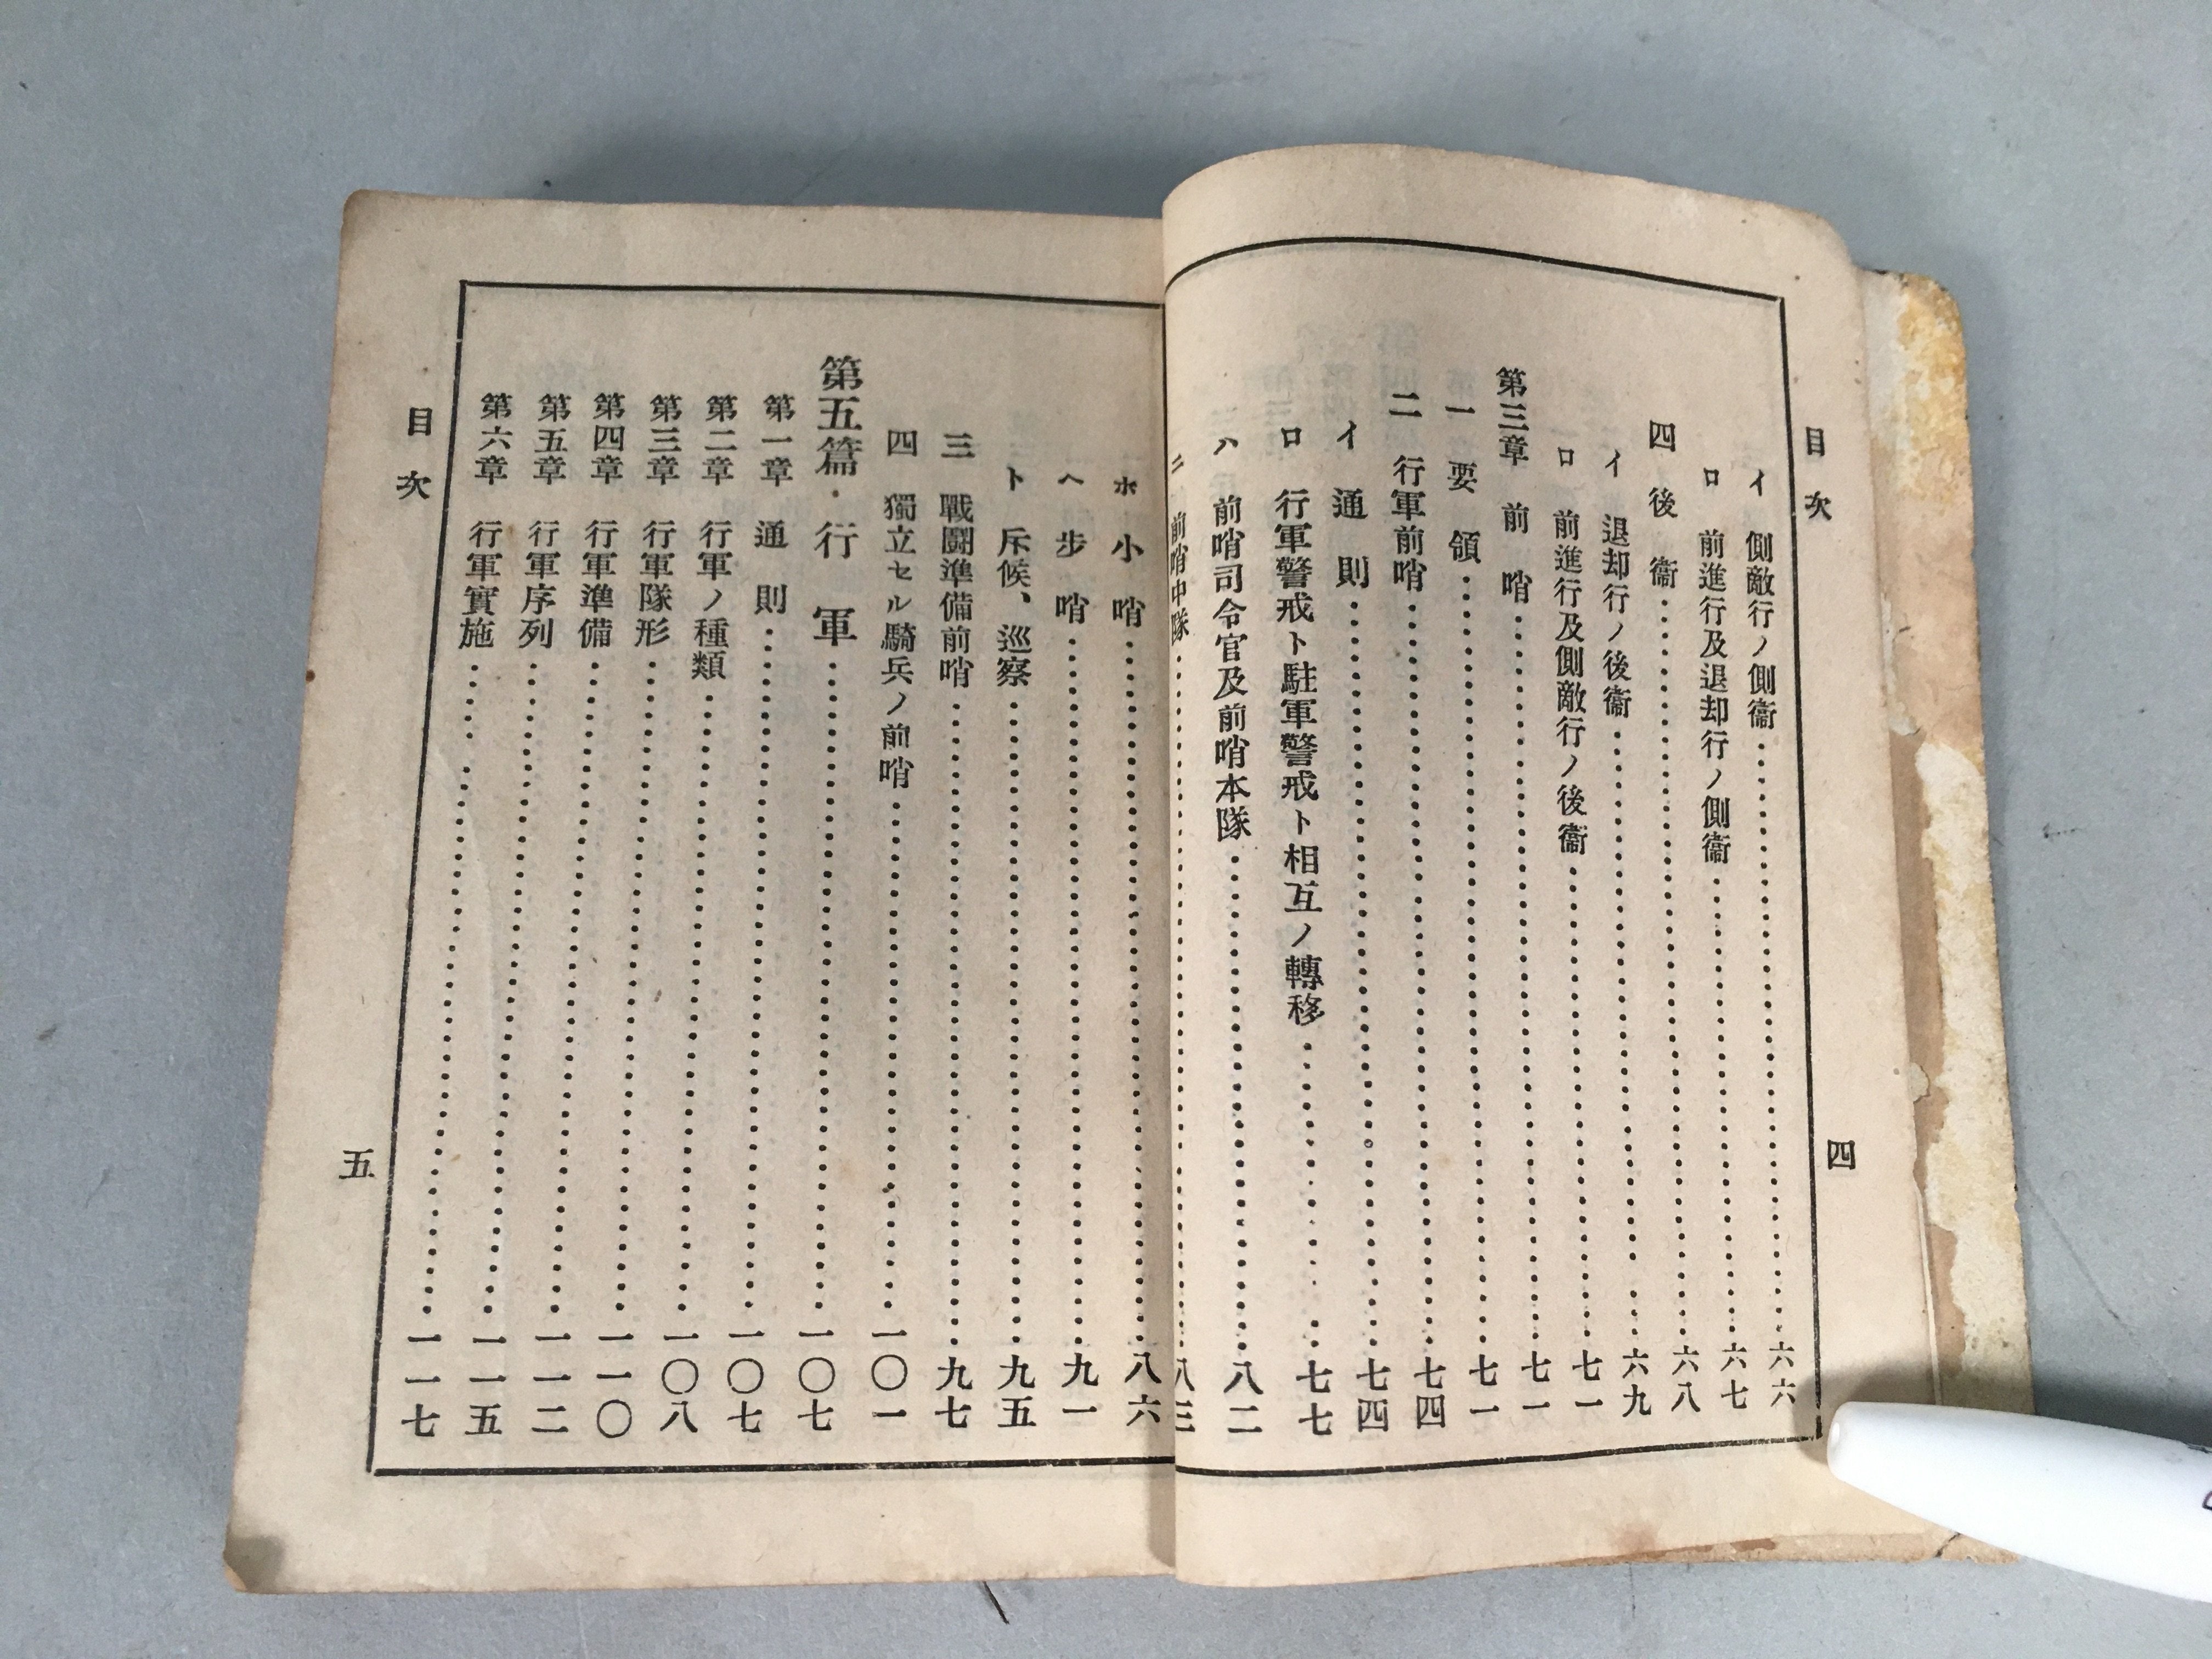 目次
四
イ 側敵行ノ側衞……六六
ロ 前進行及退却行ノ側衞……六七
四 後衞……六八
イ 退却行ノ後衞……六九
ロ 前進行及側敵行ノ後衞……七一
第三章 前哨……七一
一 要領……七一
二 行軍前哨……七四
イ 通則……七四
ロ 行軍警戒ト駐軍警戒ト相互ノ轉移……七七
ハ 前哨司令官及前哨本隊……八二
ニ 前哨中隊……八三
ホ 小哨……八六
ヘ 步哨……九一
ト 斥候、巡察……九五
三 戰鬪準備前哨……九七
四 獨立セル騎兵ノ前哨……一〇一
第五篇 行軍……一〇七
第一章 通則……一〇七
第二章 行軍ノ種類……一〇八
第三章 行軍隊形……一一〇
第四章 行軍準備……一一二
第五章 行軍序列……一一五
第六章 行軍實施……一一七
目次
五